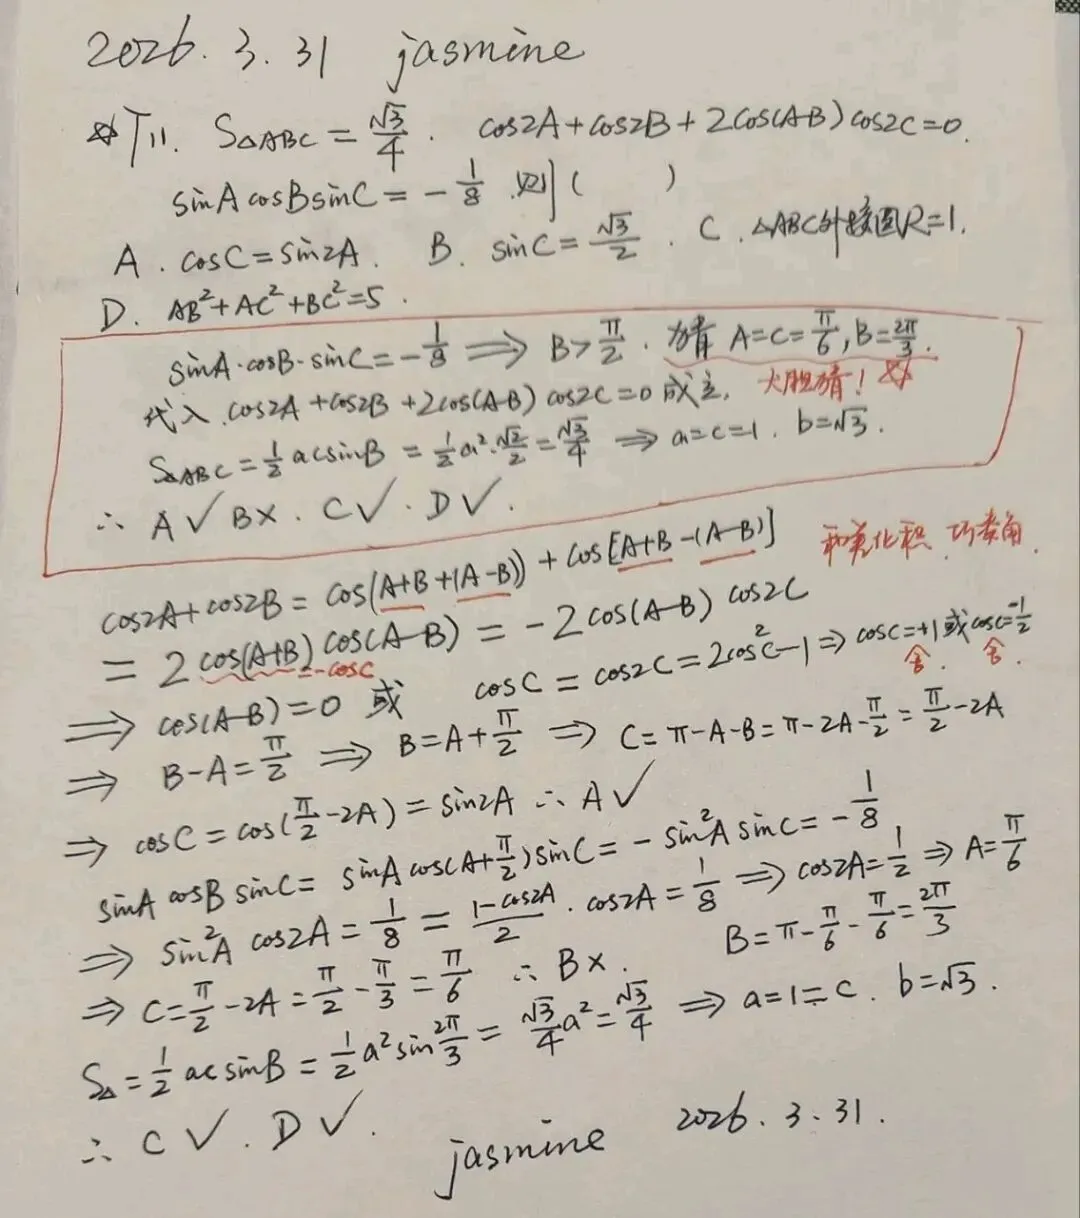 2026.3.31 jasmine
☆T11. S△ABC = √3/4 . cos2A+cos2B+2cos(A-B)cos2C=0.
sinAcosBsinC = -1/8 .则( )
A. cosC=sin2A. B. sinC=√3/2 . C. △ABC外接圆R=1.
D. AB²+AC²+BC²=5.
sinA·cosB·sinC=-1/8 ⟹ B>π/2 . 猜 A=C=π/6, B=2π/3.
代入.cos2A+cos2B+2cos(A-B)cos2C=0成立. 大胆猜!☆
S△ABC=1/2 acsinB = 1/2 a²·√3/2 = √3/4 ⟹ a=c=1. b=√3.
∴ A√ B×. C√. D√.
cos2A+cos2B = cos(A+B+(A-B)) + cos[A+B-(A-B)] 和差化积 巧凑角.
= 2cos(A+B)cos(A-B) = -2cos(A-B) cos2C
=-cosC
⟹ cos(A-B)=0 或 cosC = cos2C = 2cos²C-1 ⟹ cosC=+1或cosC=-1/2
舍. 舍.
⟹ B-A=π/2 ⟹ B=A+π/2 ⟹ C=π-A-B=π-2A-π/2=π/2-2A
⟹ cosC=cos(π/2-2A)=sin2A ∴ A√
sinAcosBsinC= sinAcos(A+π/2)sinC=-sin²AsinC=-1/8
⟹ sin²A cos2A=1/8=(1-cos2A)/2 . cos2A=1/8 ⟹ cos2A=1/2 ⟹ A=π/6
⟹ C=π/2-2A=π/2-π/3=π/6 ∴ B×. B=π-π/6-π/6=2π/3
S△=1/2 acsinB=1/2 a²sin2π/3=√3/4 a²=√3/4 ⟹ a=1=c. b=√3.
∴ C√. D√.
jasmine 2026.3.31.